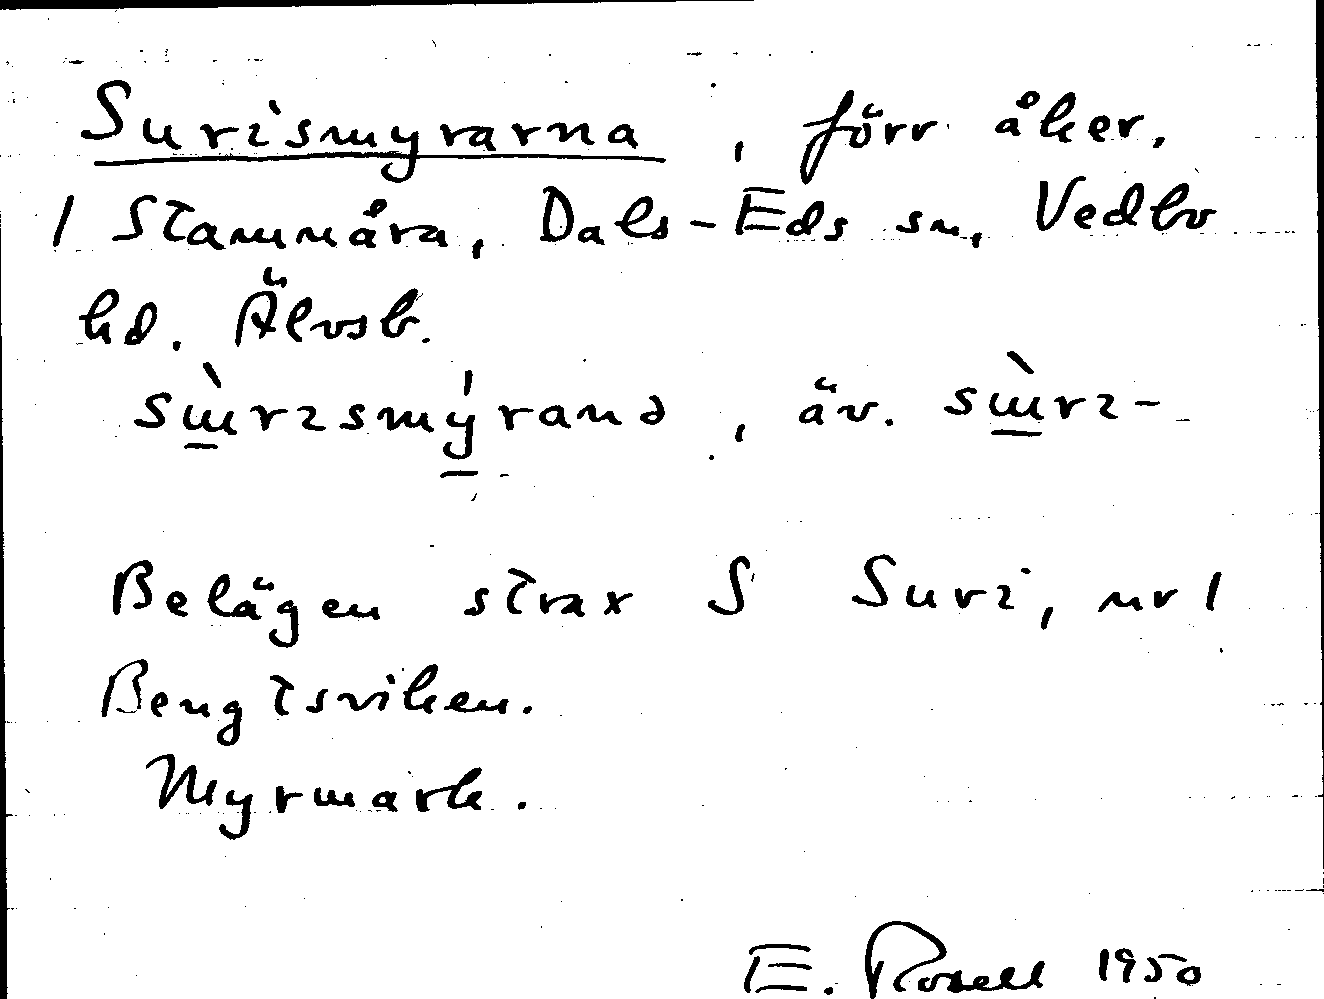 Surismyrarna, förr åker.
1 Stamnåra, Dals-Eds sn, Vedbo
hd. Älvsb.
sɯ̀rɩsmýranə, äv. sɯ̀rɩ-
Belägen strax S Suri, nr 1
Bengtsviken.
Myrmark.
E. Rosell 1950